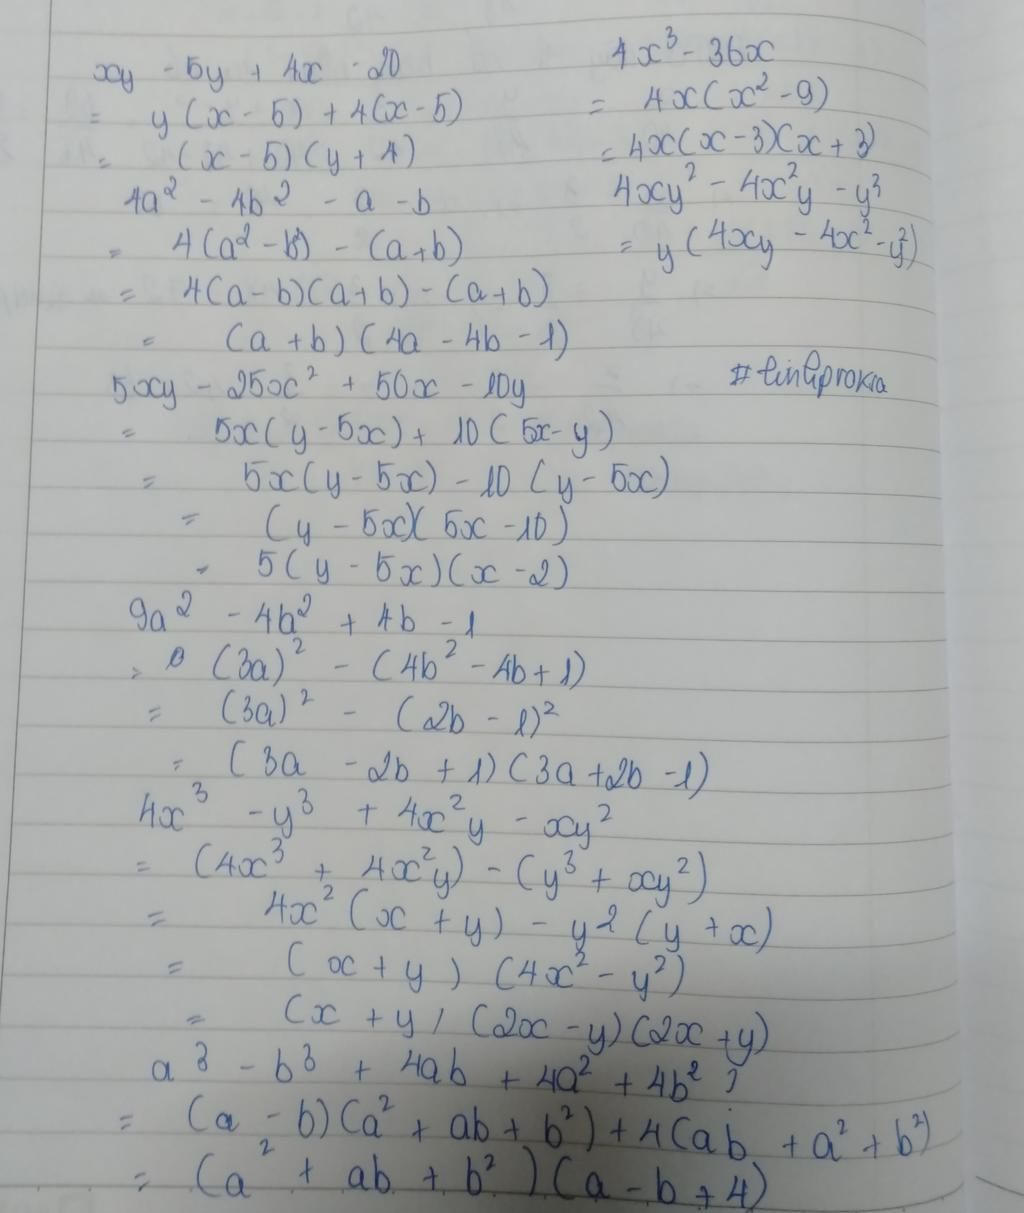 xy - 5y + 4x - 20
= y(x - 5) + 4(x - 5)
= (x - 5)(y + 4)
4a² - 4b² - a - b
= 4(a² - b²) - (a + b)
= 4(a - b)(a + b) - (a + b)
= (a + b)(4a - 4b - 1)
5xy - 25x² + 50x - 10y
= 5x(y - 5x) + 10(5x - y)
= 5x(y - 5x) - 10(y - 5x)
= (y - 5x)(5x - 10)
= 5(y - 5x)(x - 2)
9a² - 4b² + 4b - 1
= (3a)² - (4b² - 4b + 1)
= (3a)² - (2b - 1)²
= (3a - 2b + 1)(3a + 2b - 1)
4x³ - y³ + 4x²y - xy²
= (4x³ + 4x²y) - (y³ + xy²)
= 4x²(x + y) - y²(y + x)
= (x + y)(4x² - y²)
= (x + y)(2x - y)(2x + y)
a³ - b³ + 4ab + 4a² + 4b²
= (a - b)(a² + ab + b²) + 4(ab + a² + b²)
= (a² + ab + b²)(a - b + 4)
4x³ - 36x
= 4x(x² - 9)
= 4x(x - 3)(x + 3)
4xy² - 4x²y - y³
= y(4xy - 4x² - y²)